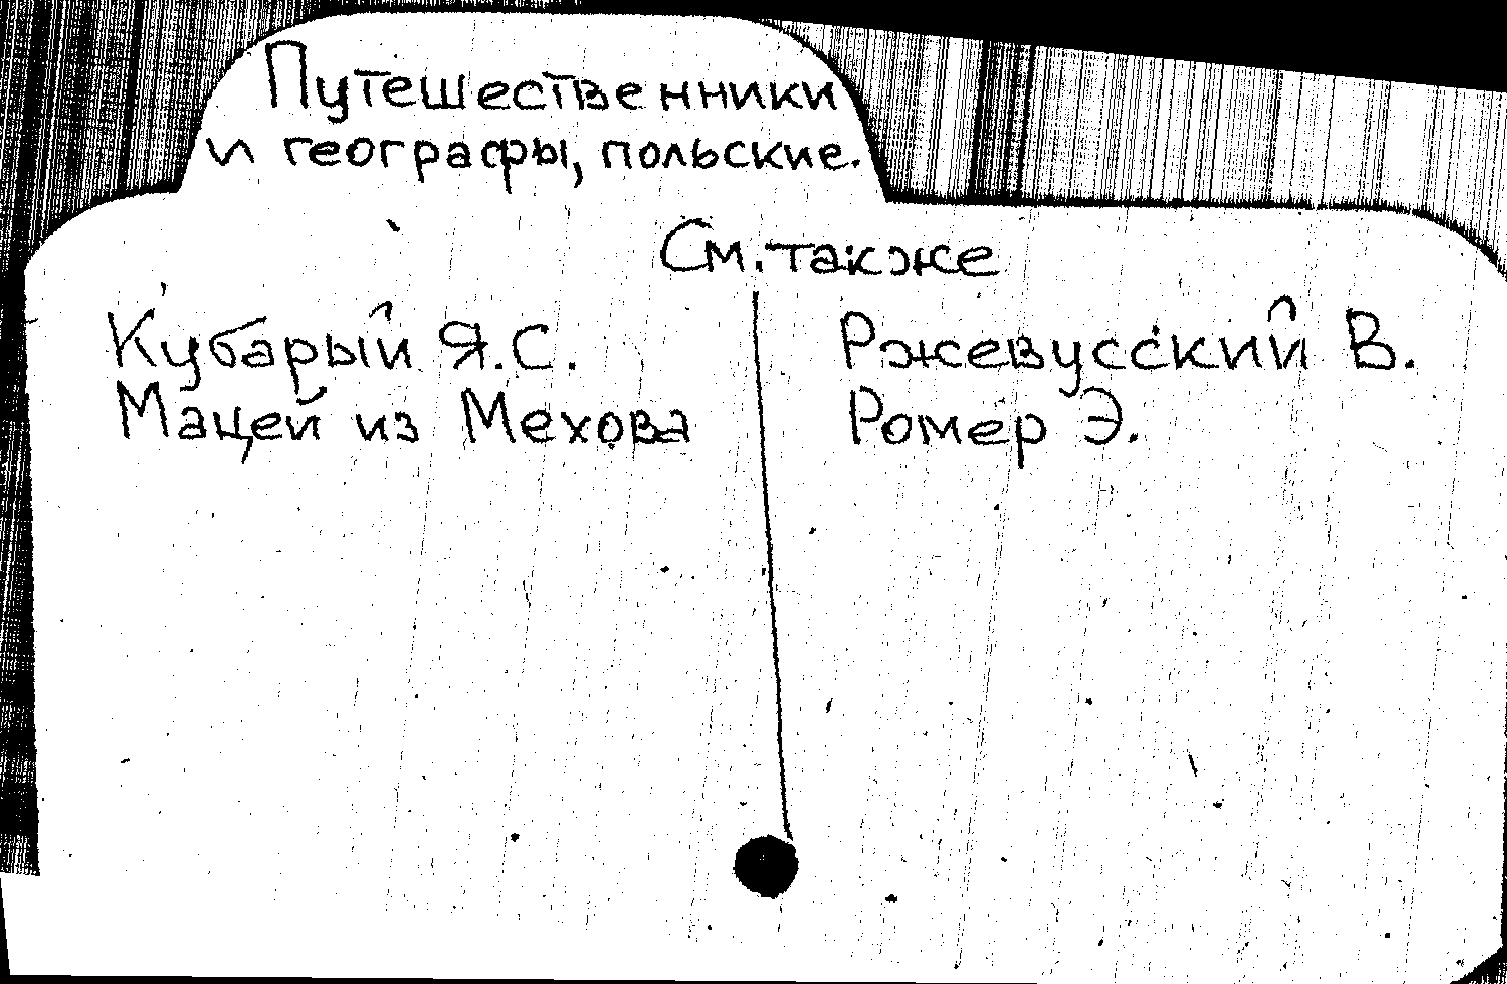 Путешественники
и географы, польские.
См. также
Кубарый Я.С.
Мацей из Мехова
Ржевусский В.
Ромер Э.